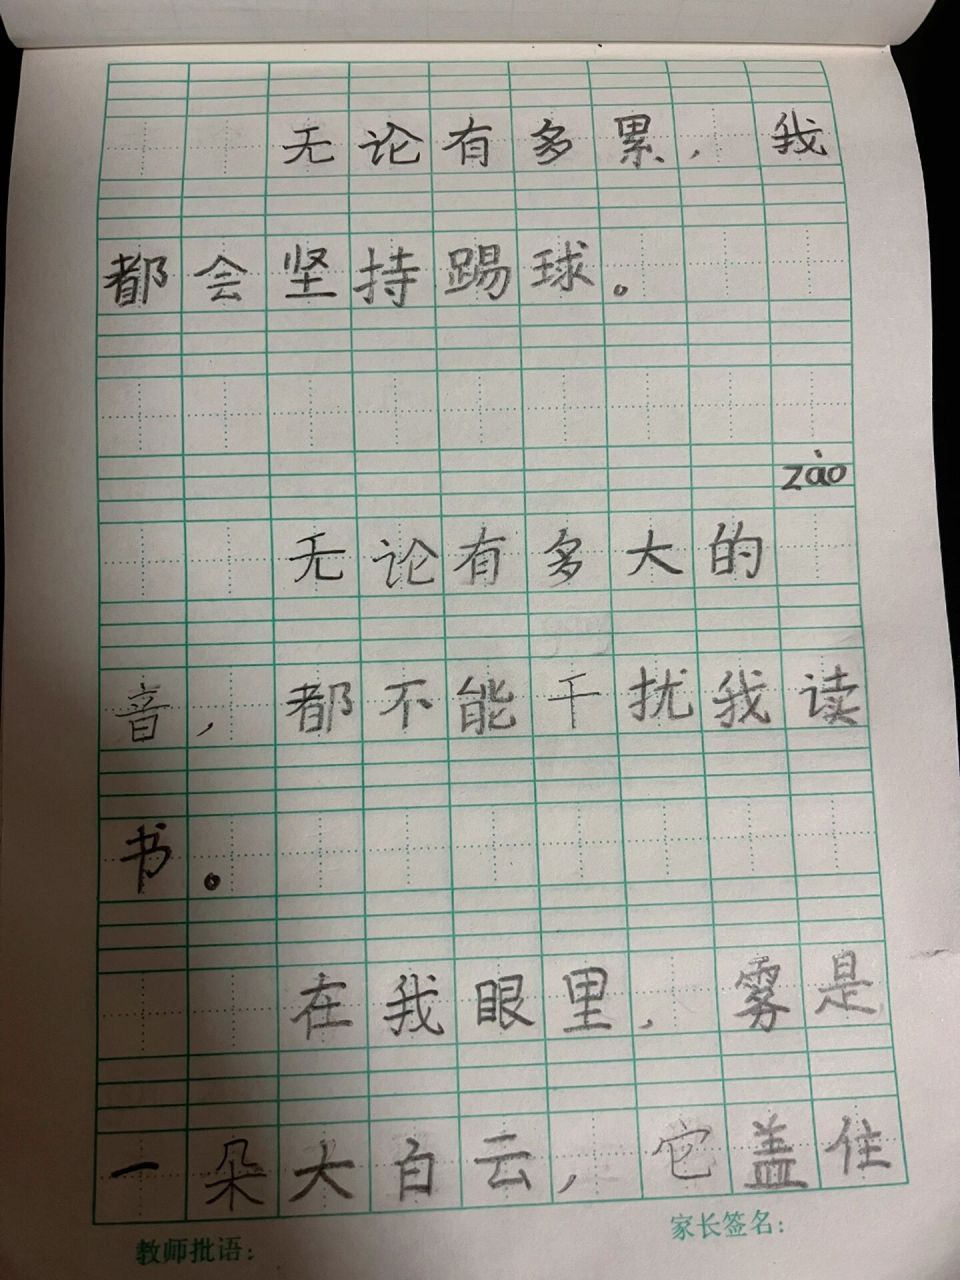 无论有多累，我
都会坚持踢球。
zào
无论有多大的
音，都不能干扰我读
书。
在我眼里，雾是
一朵大白云，它盖住
教师批语：
家长签名：